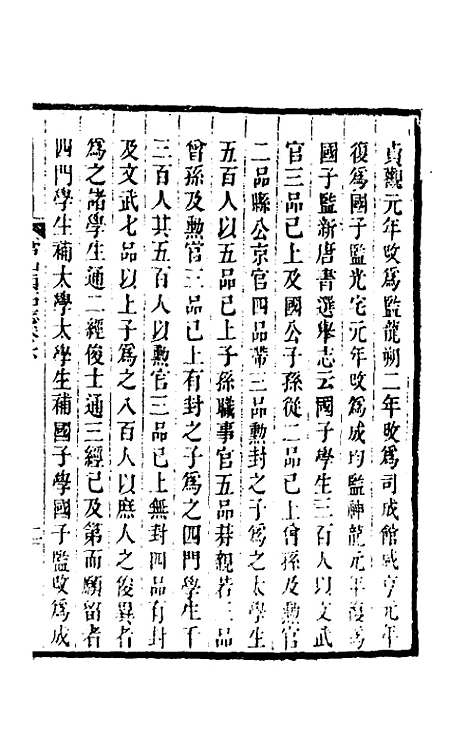 貞觀元年改爲監龍朔二年改爲司成館咸亨元年
復爲國子監光宅元年改爲成均監神龍元年復爲
國子監新唐書選舉志云國子學生三百人以文武
官三品已上及國公子孫從二品已上曾孫及勲官
二品縣公京官四品帶三品勲封之子爲之太學生
五百人以五品已上子孫職事官五品朞親若三品
曾孫及勲官三品已上有封之子爲之四門學生千
三百人其五百人以勲官三品已上無封四品有封
及文武七品以上子爲之八百人以庶人之俊異者
爲之諸學生通二經俊士通三經已及第而願留者
四門學生補太學太學生補國子學國子監改爲成